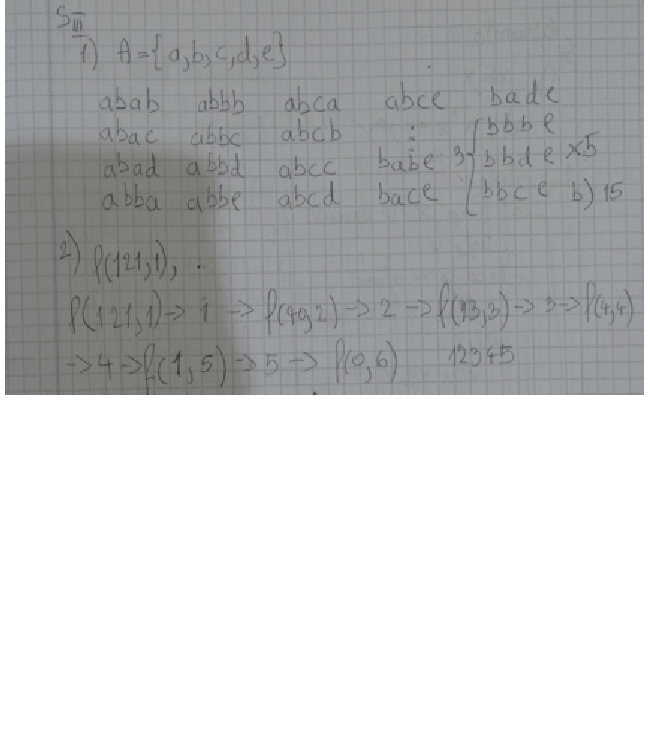 S III
1) A={a,b,c,d,e}
abab abbb abca abce bade
abac abbc abcb : bbbe
abad abbd abcc babe 3 bbde x5
abba abbe abcd bace bbce b) 15
2) f(121,1),
f(121,1)->1->f(40,2)->2->f(13,3)->3->f(4,4)
->4->f(1,5)->5->f(0,6) 12345